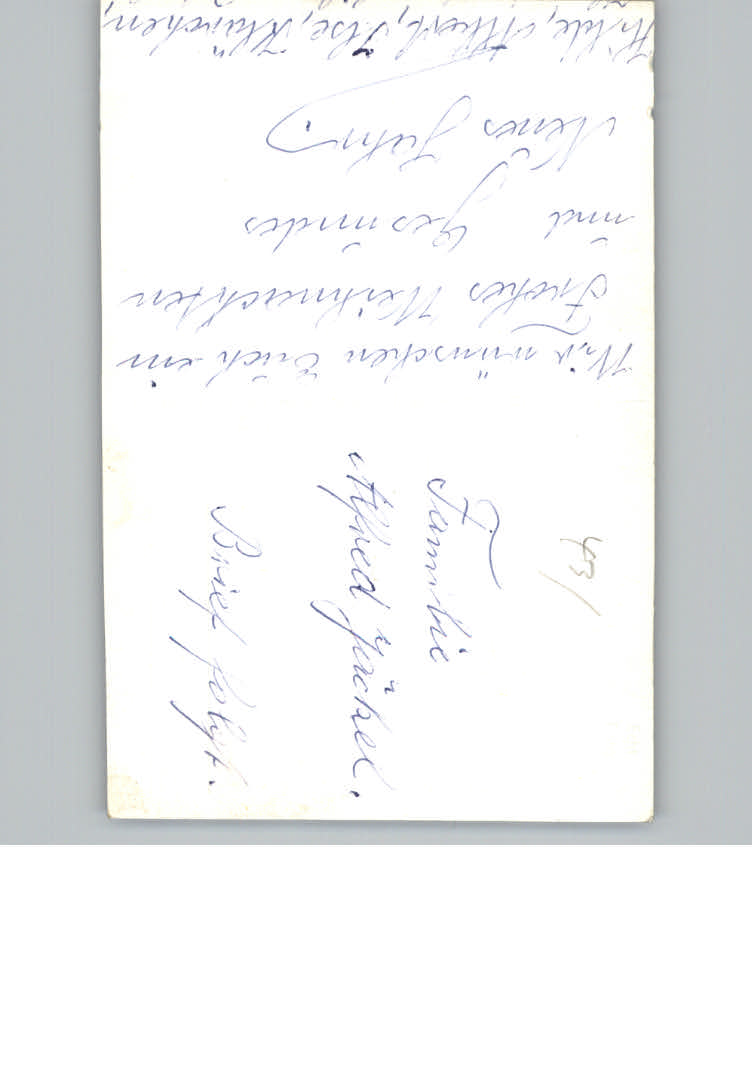 Wir wünschen Euch ein
Frohes Weihnachten
und Gesundes
Neues Jahr
Hilde, Albert, Ilse, Klärchen,
Familie
Alfred Jäckel.
Brief folgt.
43/